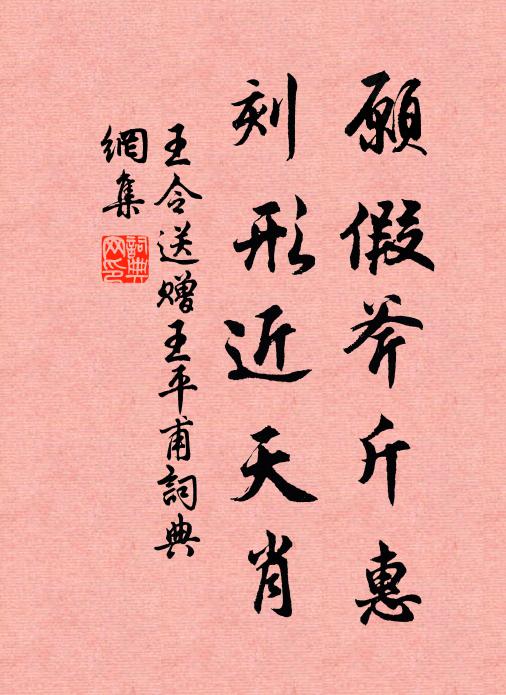 願假斧斤惠
刻形近天肖
王令送贈王平甫詞典
網集
詞典网印